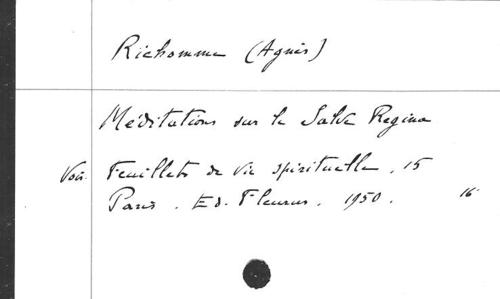 Richomme (Agnès)
Méditations sur le Salve Regina
Voir. Feuillets de vie spirituelle, 15
Paris. Ed. Fleurus. 1950. 16